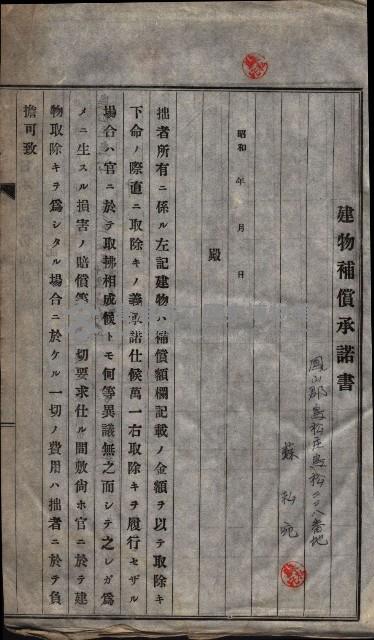 建物補償承諾書
鳳山郡鳥松庄鳥松二二八番地
蘇 私 宛
昭和 年 月 日
殿
拙者所有ニ係ル左記建物ハ補償額欄記載ノ金額ヲ以テ取除キ
下命ノ際直ニ取除キノ義承諾仕候萬一右取除キヲ履行セザル
場合ハ官ニ於テ取拂相成候トモ何等異議無之而シテ之レガ爲
メニ生スル損害ノ賠償等一切要求仕ル間敷尙ホ官ニ於テ建
物取除キヲ爲シタル場合ニ於ケル一切ノ費用ハ拙者ニ於テ負
擔可致